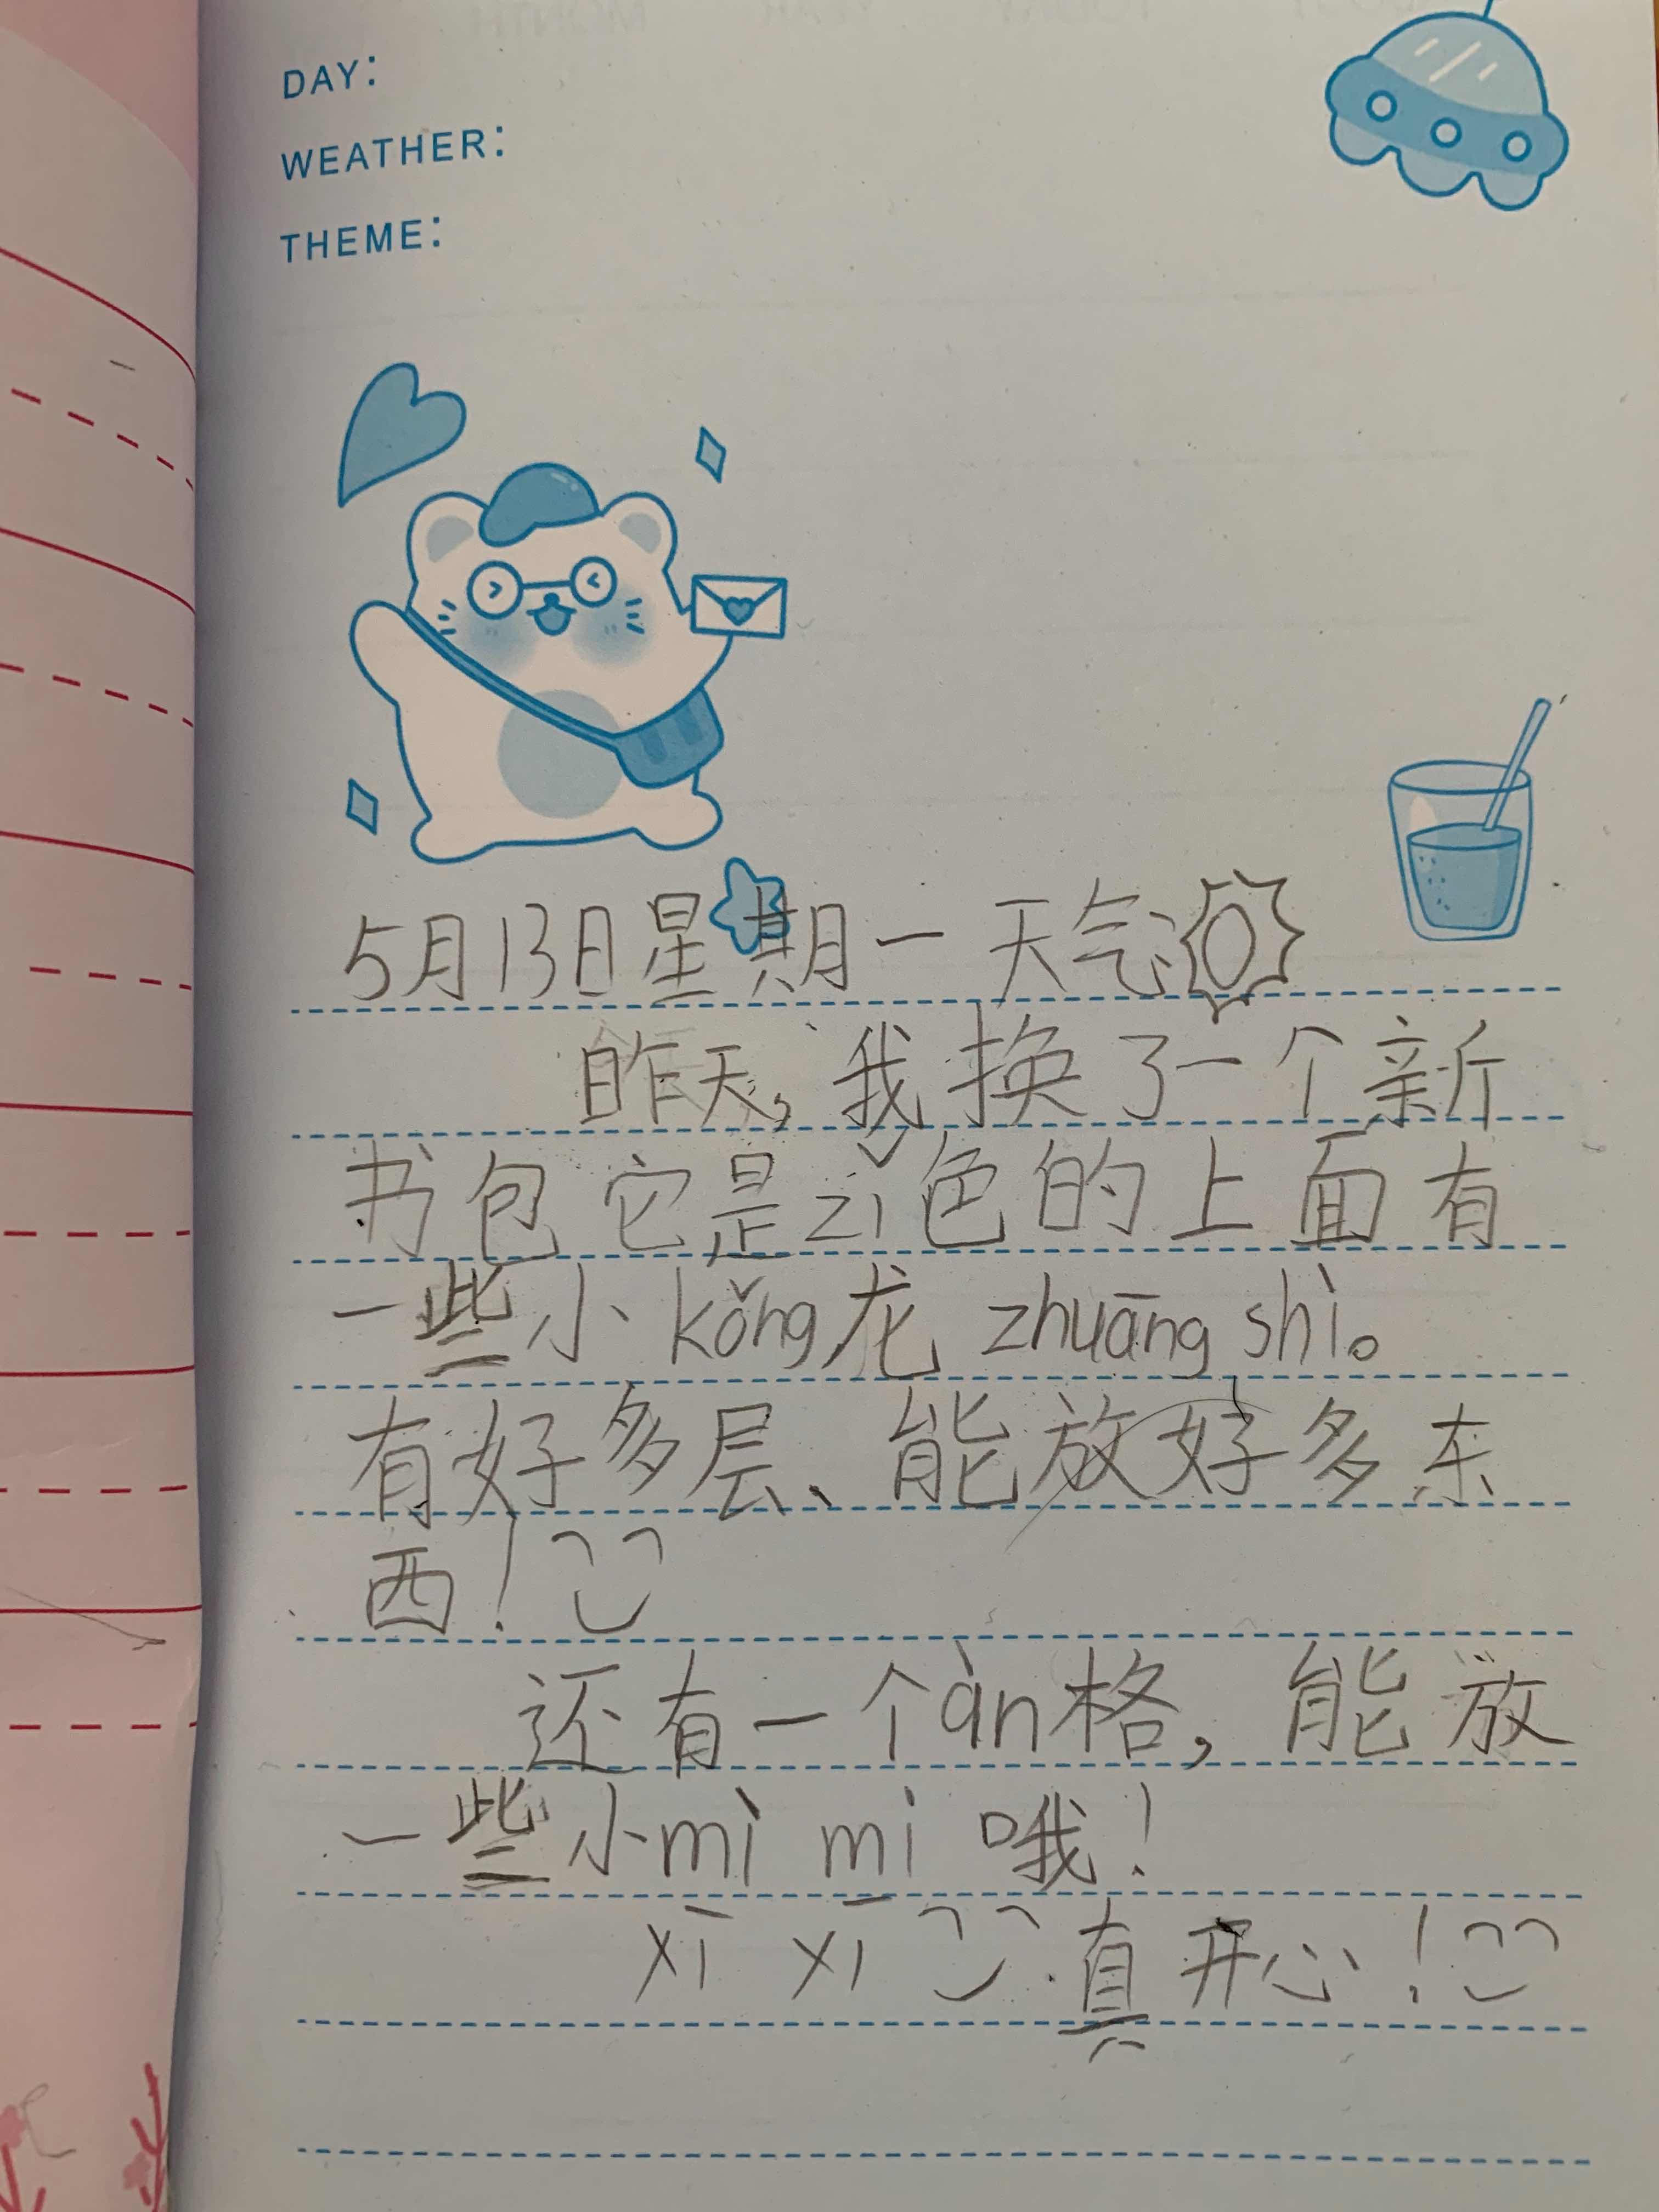 DAY:
WEATHER:
THEME:
5月13日星期一天气
昨天,我换了一个新
书包它是zǐ色的上面有
一些小kǒng龙zhuāng shì。
有好多层、能放好多东
西!
还有一个àn格,能放
一些小mì mì哦!
xī xī 真开心!